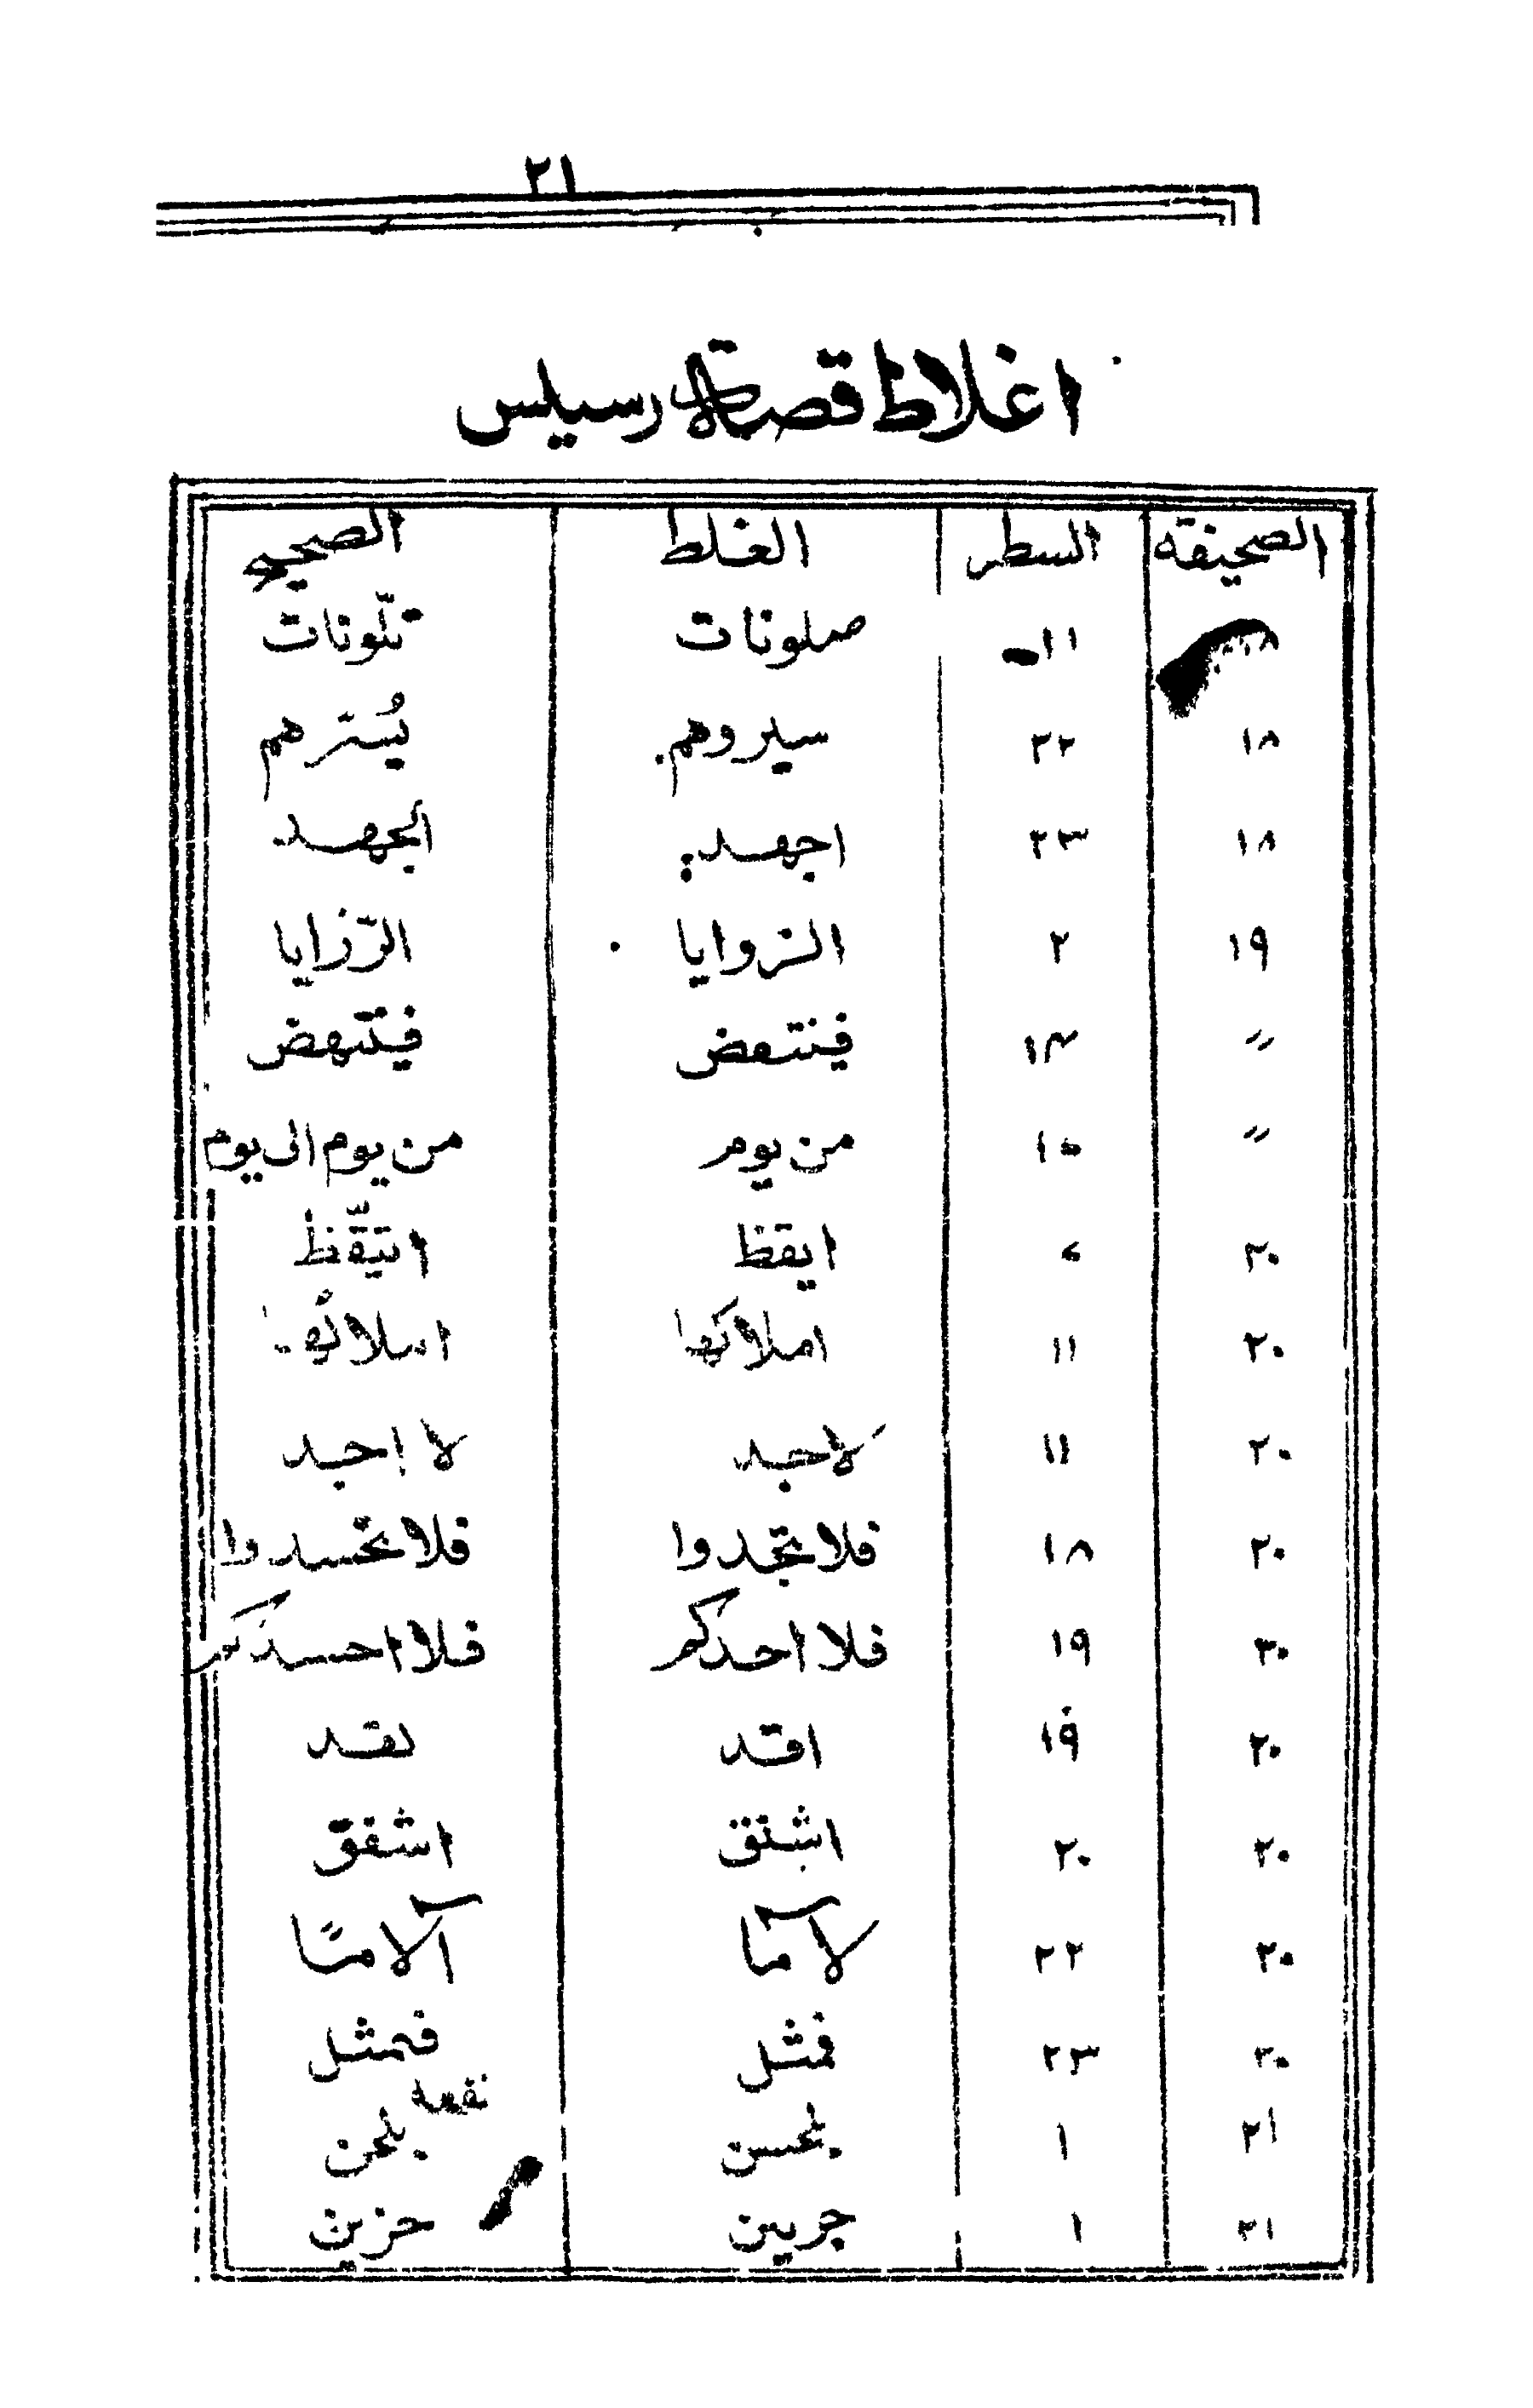 ٢١
اغلاط قصة رسيلس
الصحيفة السطر الغلط الصحيح
١٨ ١١ صلونات تلّونات
١٨ ٢٢ سيروهم يُسترهم
١٨ ٢٣ اجهد الجهد
١٩ ٢ الزوايا الرّزايا
〃 ١٣ فنتعض فيتنهض
〃 ١٥ من يوم من يوم الى يوم
٢٠ ايقظ اتيقّظ
٢٠ ١١ املاكها
٢٠ ١١ لاجد لا اجد
٢٠ ١٨ فلا تجدوا فلا تحسدوا
٢٠ ١٩ فلا احدكم فلا احسدكم
٢٠ ١٩ اقد لقد
٢٠ ٢٠ اشتق اشفق
٢٠ ٢٢ لآما آلامًا
٢٠ ٢٣ فمثل فمثل
٢١ ١ بلحسن بلحن
٢١ ١ جريين حزين